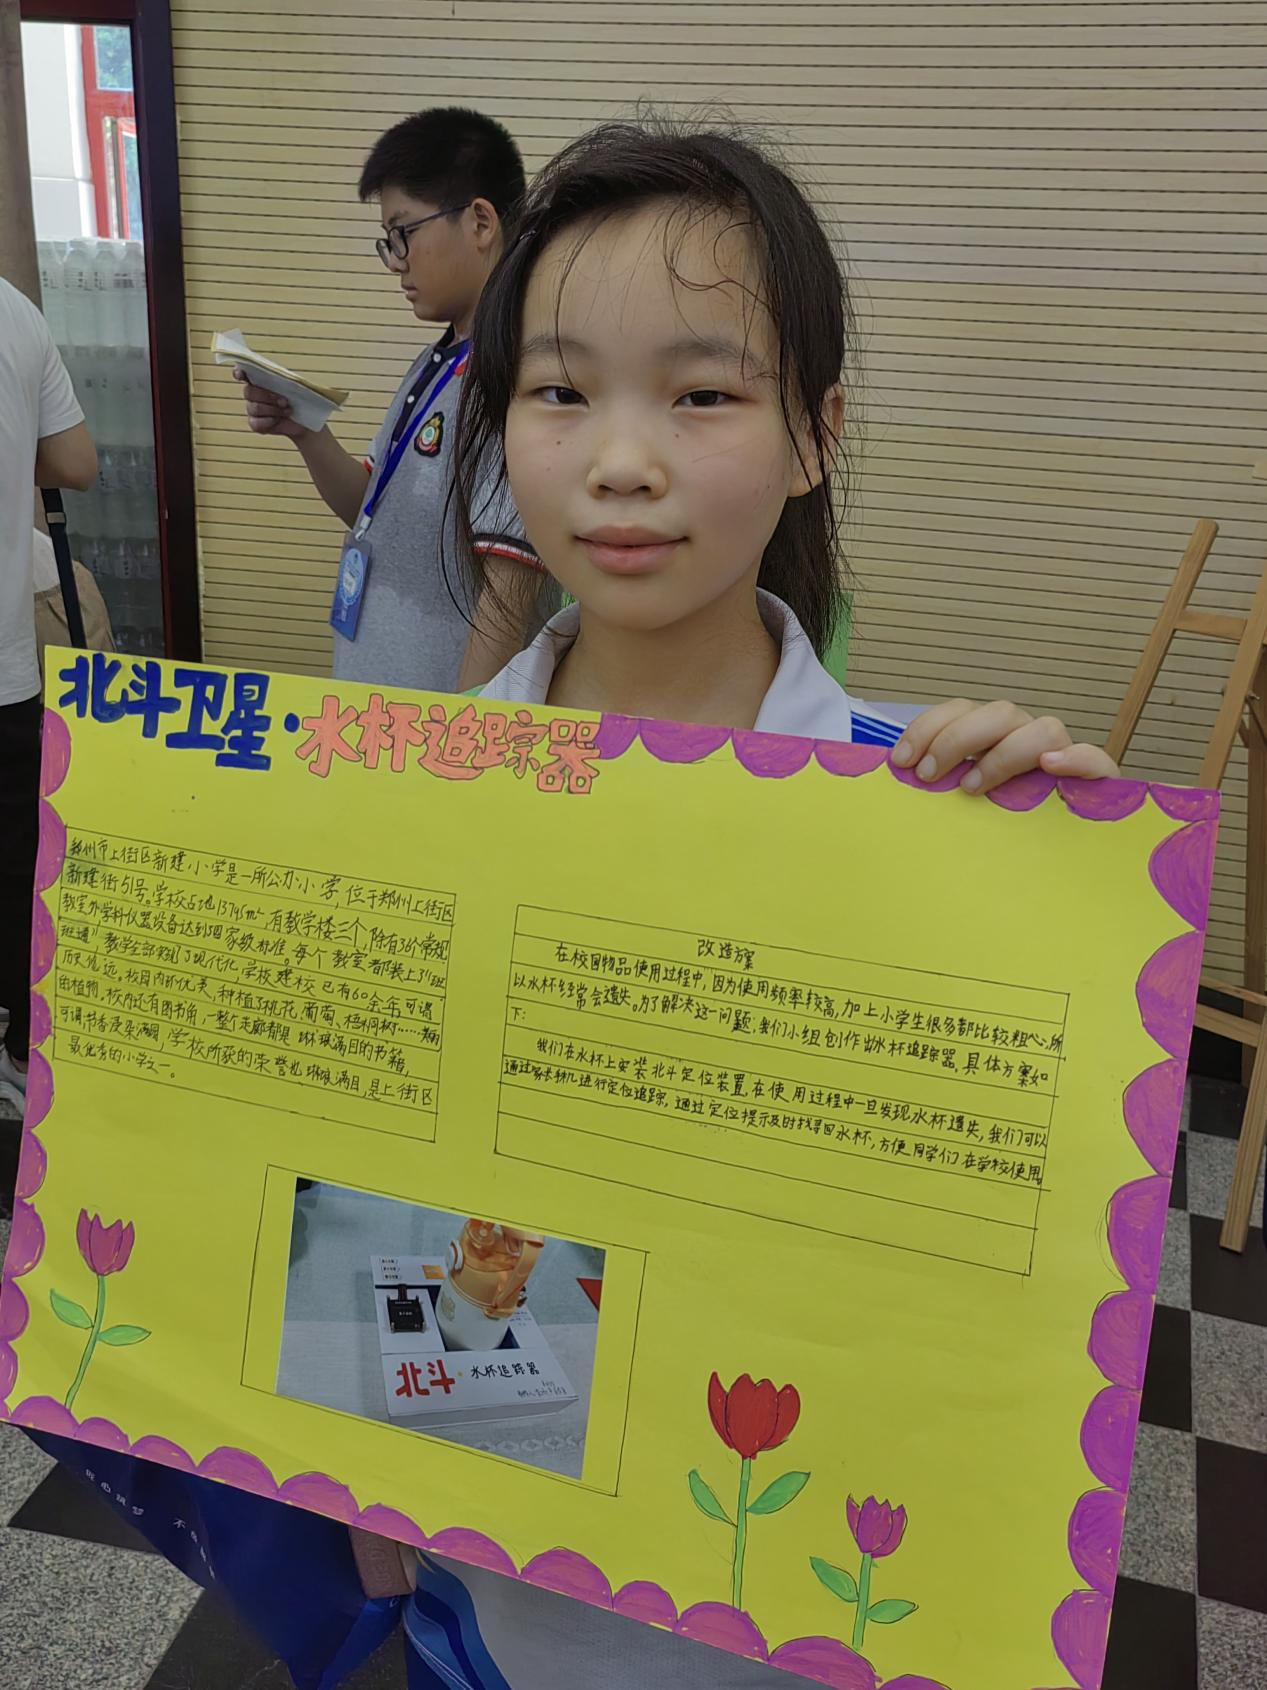 北斗卫星·水杯追踪器
郑州市上街区新建小学是一所公办小学,位于郑州上街区
新建街51号。学校占地13795m²,有教学楼三个,除有36个常规
教室外,学科仪器设备达到国家级标准。每个教室都装上了“班
班通”,教学全部实现了现代化,学校建校已有60余年,可谓
历史悠远。校园内环优美,种植了桃花、葡萄、梧桐树……
的植物。校内还有图书角,一整个走廊都是琳琅满目的书籍,
可谓书香浸染满园,学校所获的荣誉也琳琅满目,是上街区
最优秀的小学之一。
改造方案
在校园物品使用过程中,因为使用频率较高,加上小学生很多都比较粗心,所
以水杯经常会遗失。为了解决这一问题,我们小组创作出水杯追踪器,具体方案如
下:
我们在水杯上安装北斗定位装置,在使用过程中一旦发现水杯遗失,我们可以
通过家长手机进行定位追踪,通过定位提示及时找寻回水杯,方便同学们在学校使用。
北斗·水杯追踪器